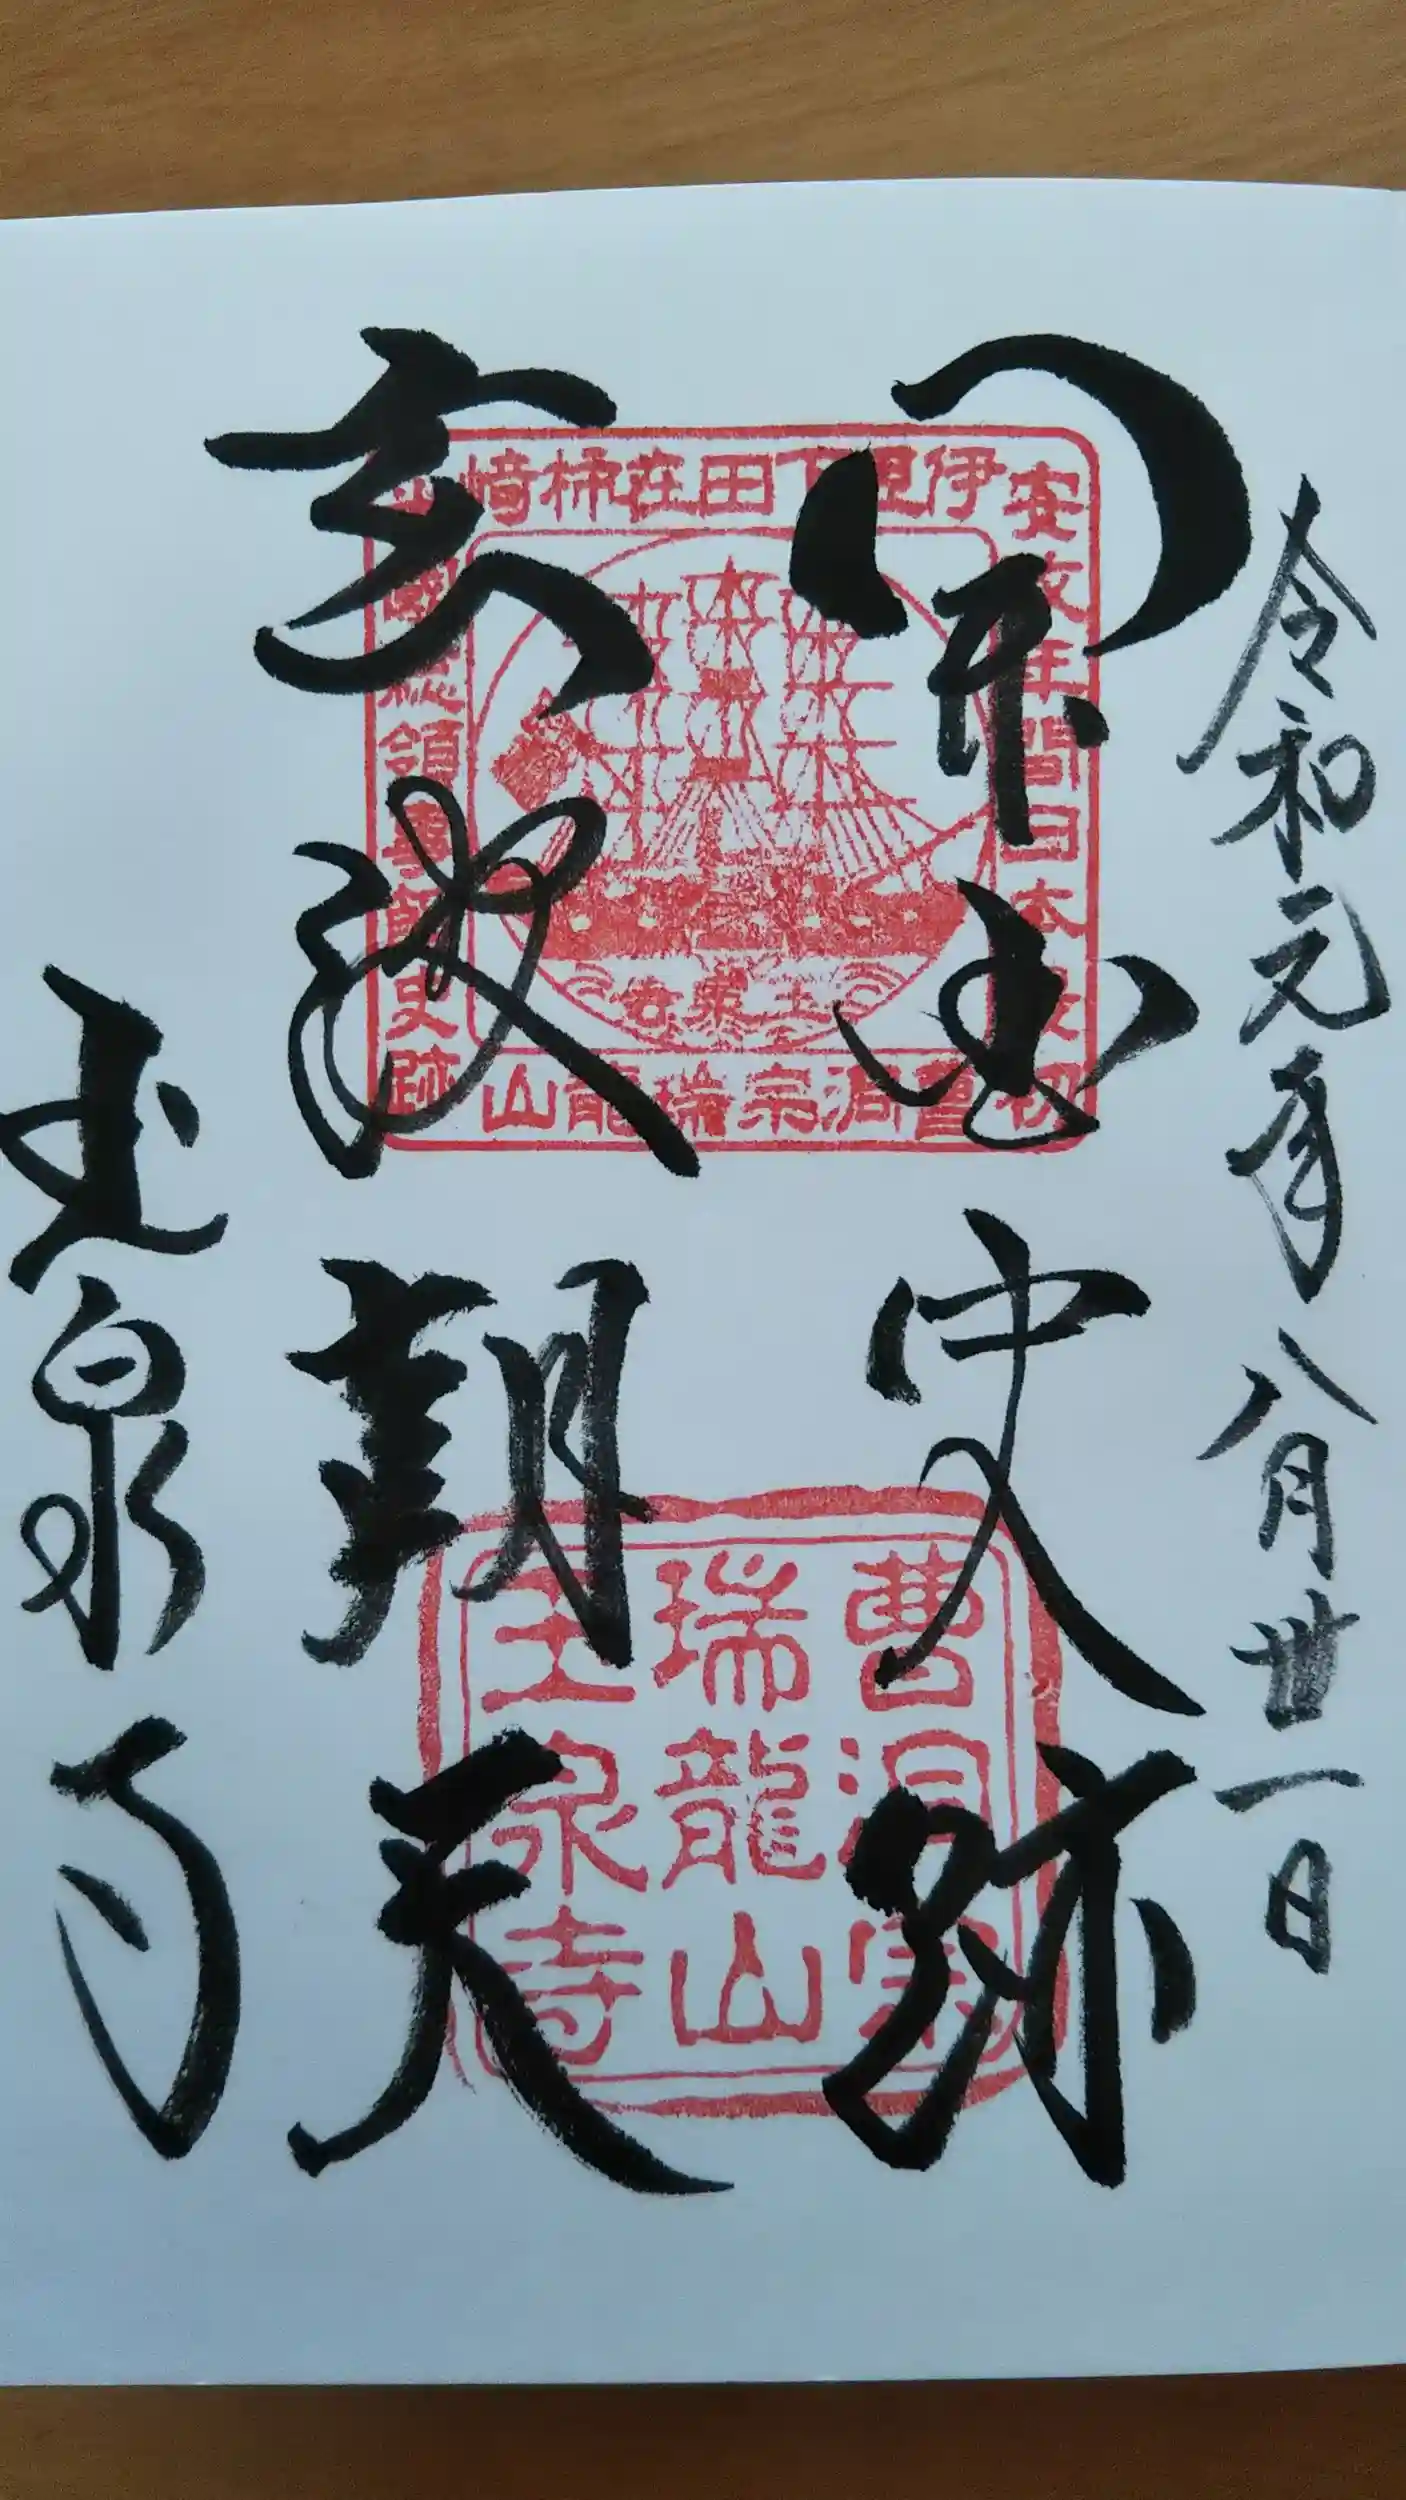 令和元年八月丗一日
開国史跡
朝天
玉泉寺
安政年間日本最初
伊豆下田在柿﨑
國總領事館史跡
曹洞宗瑞龍山
玉泉寺
曹洞宗
瑞龍山
玉泉寺